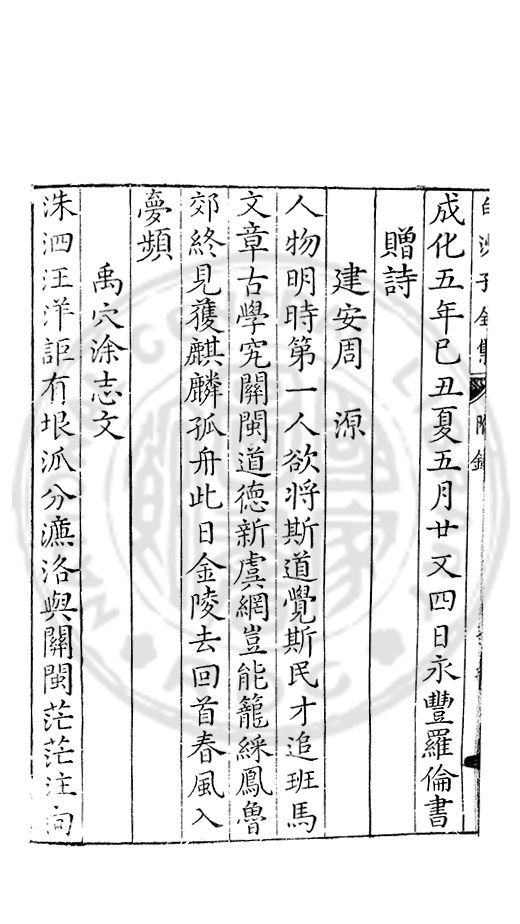 白沙子全集 附錄
成化五年巳丑夏五月廿又四日永豐羅倫書
贈詩
建安周 源
人物明時第一人欲將斯道覺斯民才追班馬
文章古學究關閩道德新虞網豈能籠綵鳳魯
郊終見獲麒麟孤舟此日金陵去回首春風入
夢頻
禹穴涂志文
洙泗汪洋詎有垠派分濂洛與關閩茫茫注向